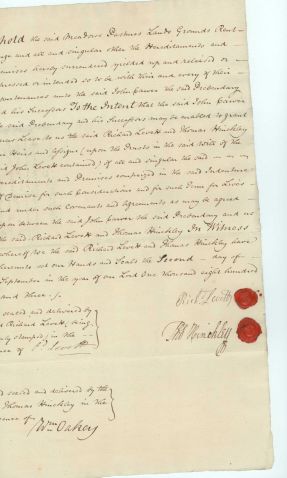 hold the said Meadows Pastures Lands Grounds Rent
and all and singular other the Hereditaments and
hereby surrendered yielded up and released or
or intended so to be with their and every of their
unto the said John Carver the said Decondary
and his Successors To the Intent that the said John Carver
the said Decondary and his Successors may be enabled to grant
to us the said Richard Levett and Thomas Hinckley
Heirs and Assigns (upon the Trusts in the said Will of the
said John Levett contained) of all and singular the said
Hereditaments and Premises comprized in the said Indenture
of Demise for such Considerations and for such Term for Lives
and under such Covenants and Agreements as may be agreed
upon between the said John Carver the said Decondary and us
the said Richard Levett and Thomas Hinckley In Witness
whereof we the said Richard Levett and Thomas Hinckley have
hereunto set our Hands and Seals the Second day of
September in the year of our Lord One thousand eight hundred
and three
sealed and delivered by
Richard Levett, being
stamped, in the
of
Levett
Richd Levett
Thos Hinckley
sealed and delivered by the
Thomas Hinckley in the
of
Wm Oakey